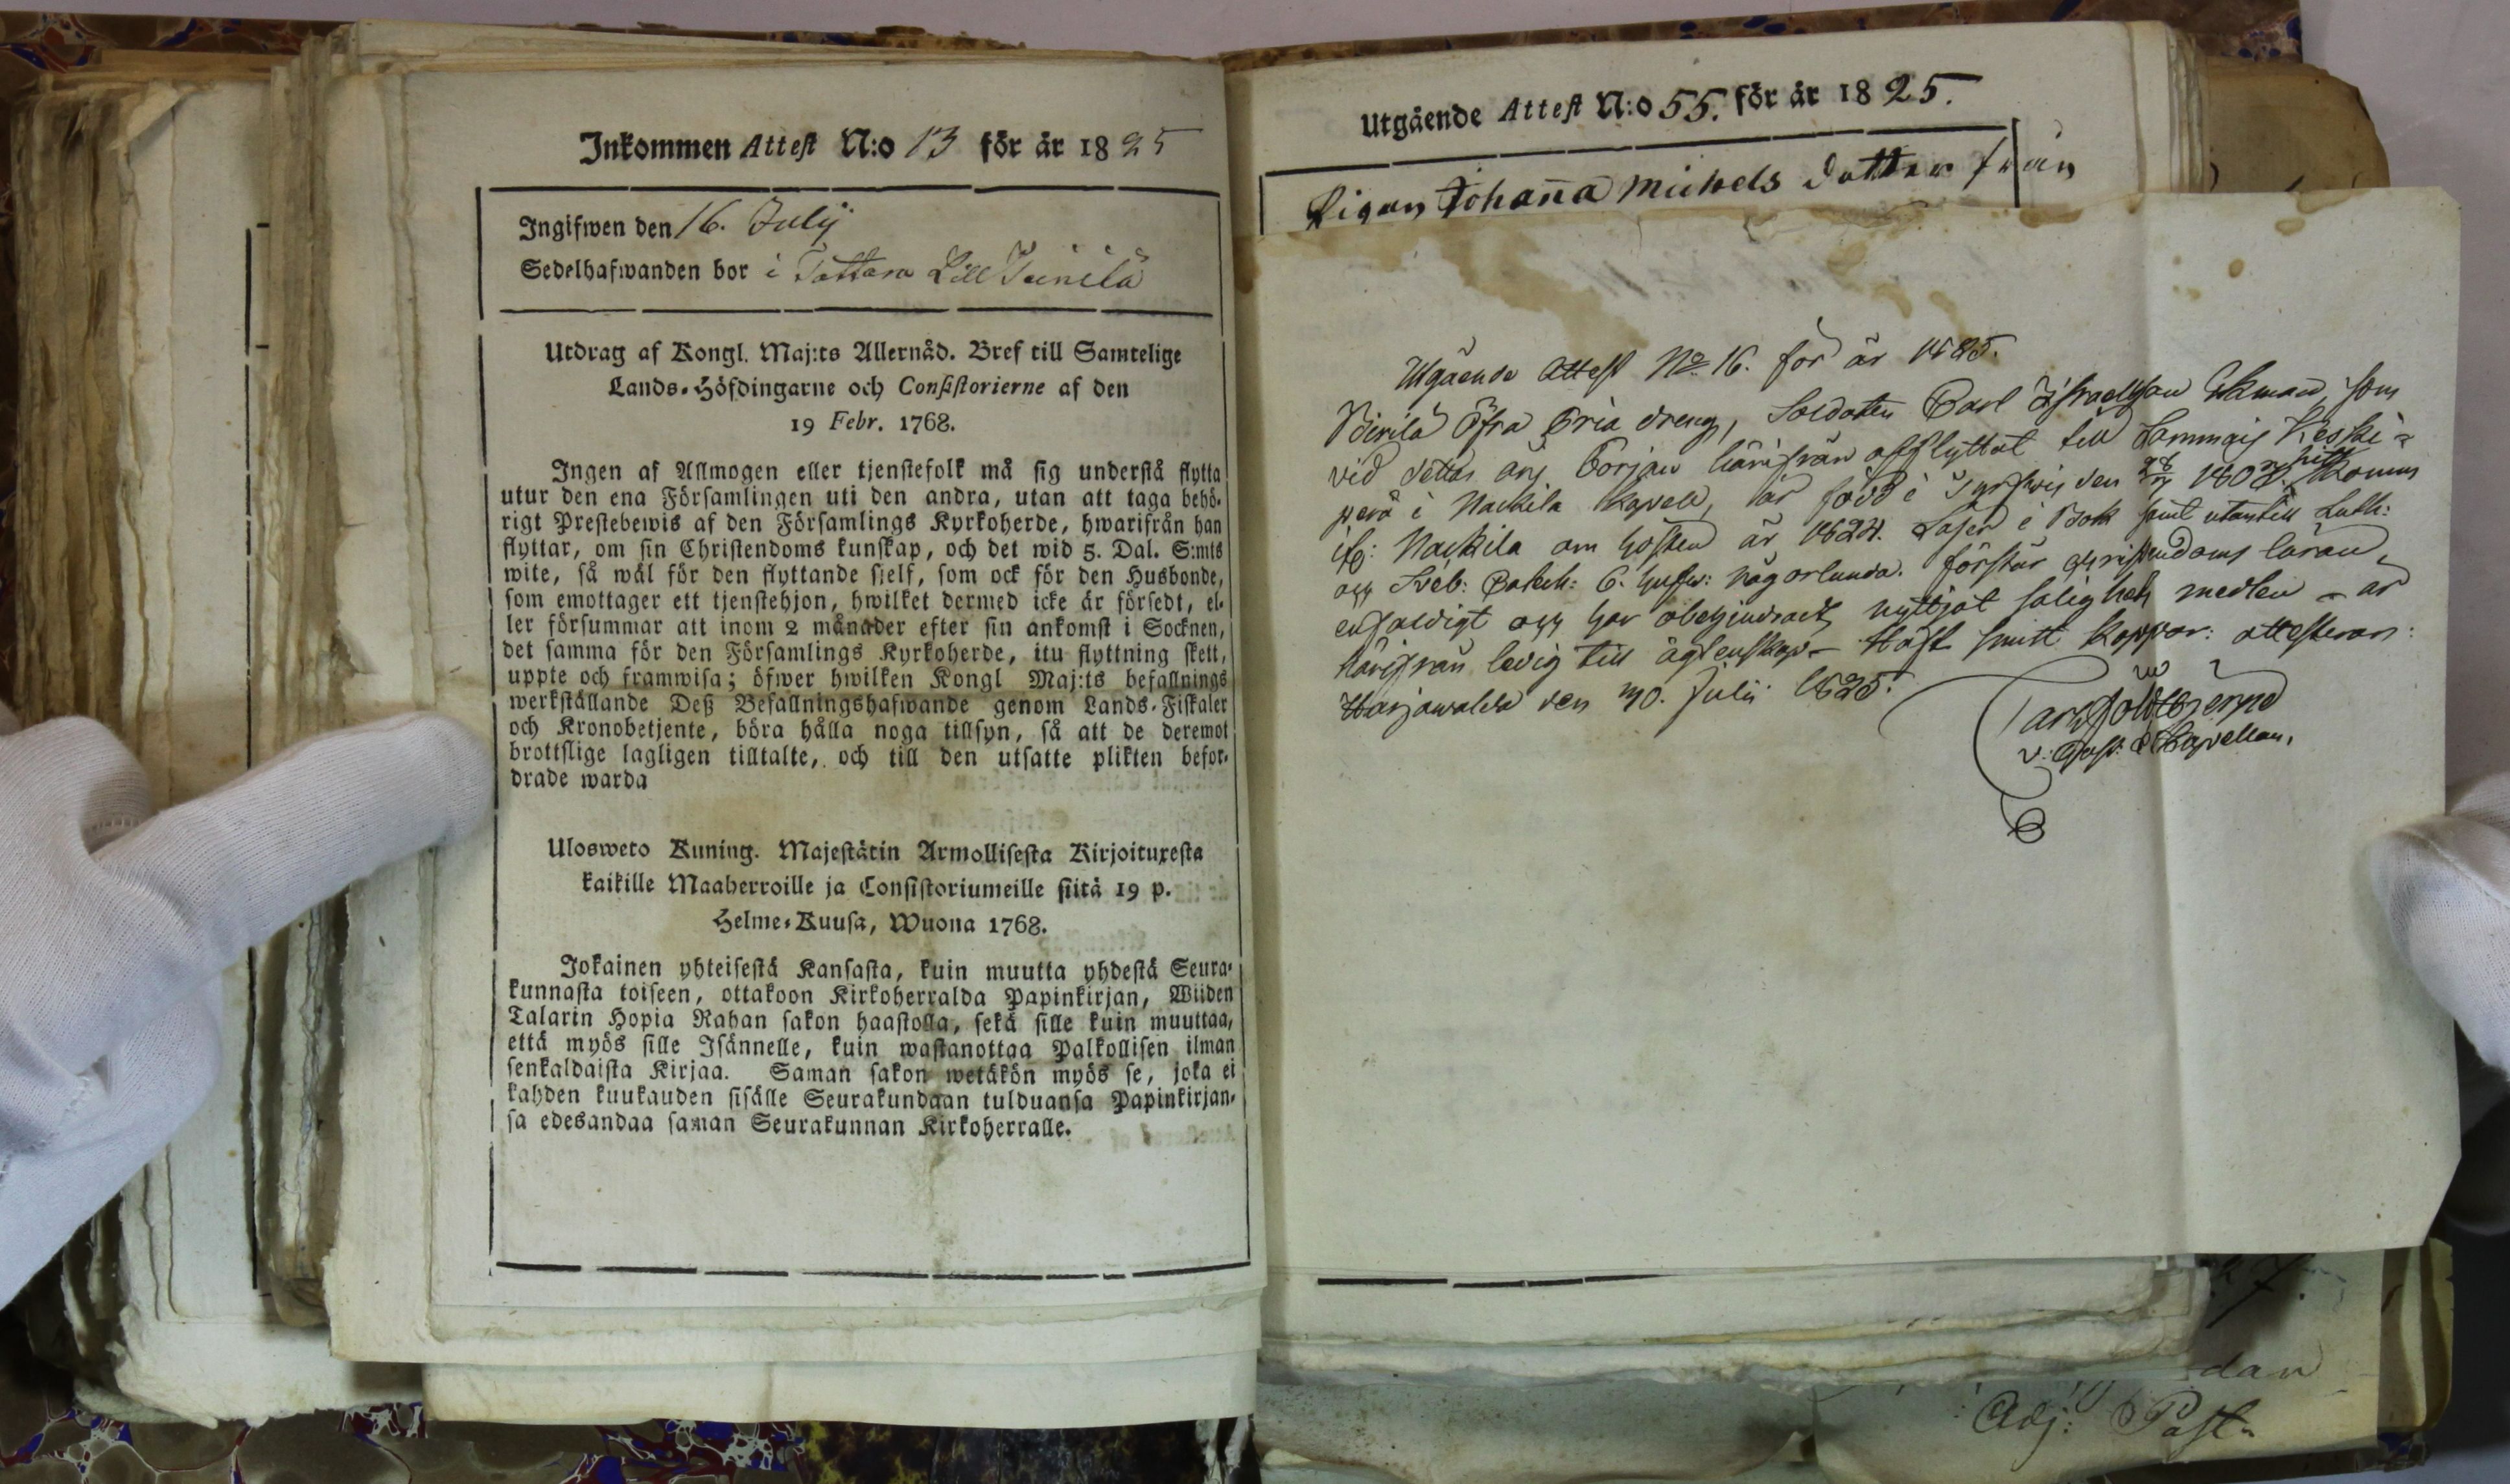 Inkommen Attest N:o 13 för år 1825
Ingifwen den 16. Julij
Sedelhafwanden bor i Tattara Lill Heinilä
Utdrag af Kongl. Maj:ts Allernåd. Bref till Samtelige
Lands-Höfdingarne och Consistorierne af den
19 Febr. 1768.
Ingen af Allmogen eller tjenstefolk må sig understå flytta
utur den ena Församlingen uti den andra, utan att taga behö-
rigt Prestebewis af den Församlings Kyrkoherde, hwarifrån han
flyttar, om sin Christendoms kunskap, och det wid 5. Dal. S:mts
wite, så wäl för den flyttande sjelf, som ock för den Husbonde,
som emottager ett tjenstehjon, hwilket dermed icke är försedt, el-
ler försummar att inom 2 månader efter sin ankomst i Socknen,
det samma för den Församlings Kyrkoherde, itu flyttning skett,
uppte och framwisa; öfwer hwilken Kongl Maj:ts befallnings
werkställande Deß Befallningshafwande genom Lands-Fiskaler
och Kronobetjente, böra hålla noga tillsyn, så att de deremot
brottslige lagligen tilltalte, och till den utsatte plikten befor-
drade warda
Ulosweto Kuning. Majestätin Armollisesta Kirjoituxesta
kaikille Maaherroille ja Consistoriumeille siitä 19 p.
Helme-Kuusa, Wuona 1768.
Jokainen yhteisestä Kansasta, kuin muutta yhdestä Seura-
kunnasta toiseen, ottakoon Kirkoherralda Papinkirjan, Wiiden
Talarin Hopia Rahan sakon haastolla, sekä sille kuin muuttaa,
että myös sille Isännelle, kuin wastanottaa Palkollisen ilman
senkaldaista Kirjaa. Saman sakon wetäkön myös se, joka ei
kahden kuukauden sisälle Seurakundaan tulduansa Papinkirjan-
sa edesandaa saman Seurakunnan Kirkoherralle.
Utgående Attest N:o 55. för år 1825.
Pigan Johanna Michels dotter från
Utgående Attest No 16. för år 1825.
Pirilä Öfra dreng, Soldaten Carl Israelsson Ekman, som
vid dettas års början härifrån afflyttat till Lammais Keski-
perä i Nackila Kapell, är född i Tyrfvis den 1802. hitt Kommen
ifr: Nackila om hösten år 1824. Läser i Bok samt utantill Luth:
och Sveb: Catech: C. någorlunda. förstår christendoms läran
enfaldigt och har obehindradt nyttjat salighets medlen – är
härifrån ledig till ägtenskap – Haft smitt koppor: attesterar:
Harjawalda den 30. Julii 1825.
v. Past: & Kapellan.
dan
Adj: Past.